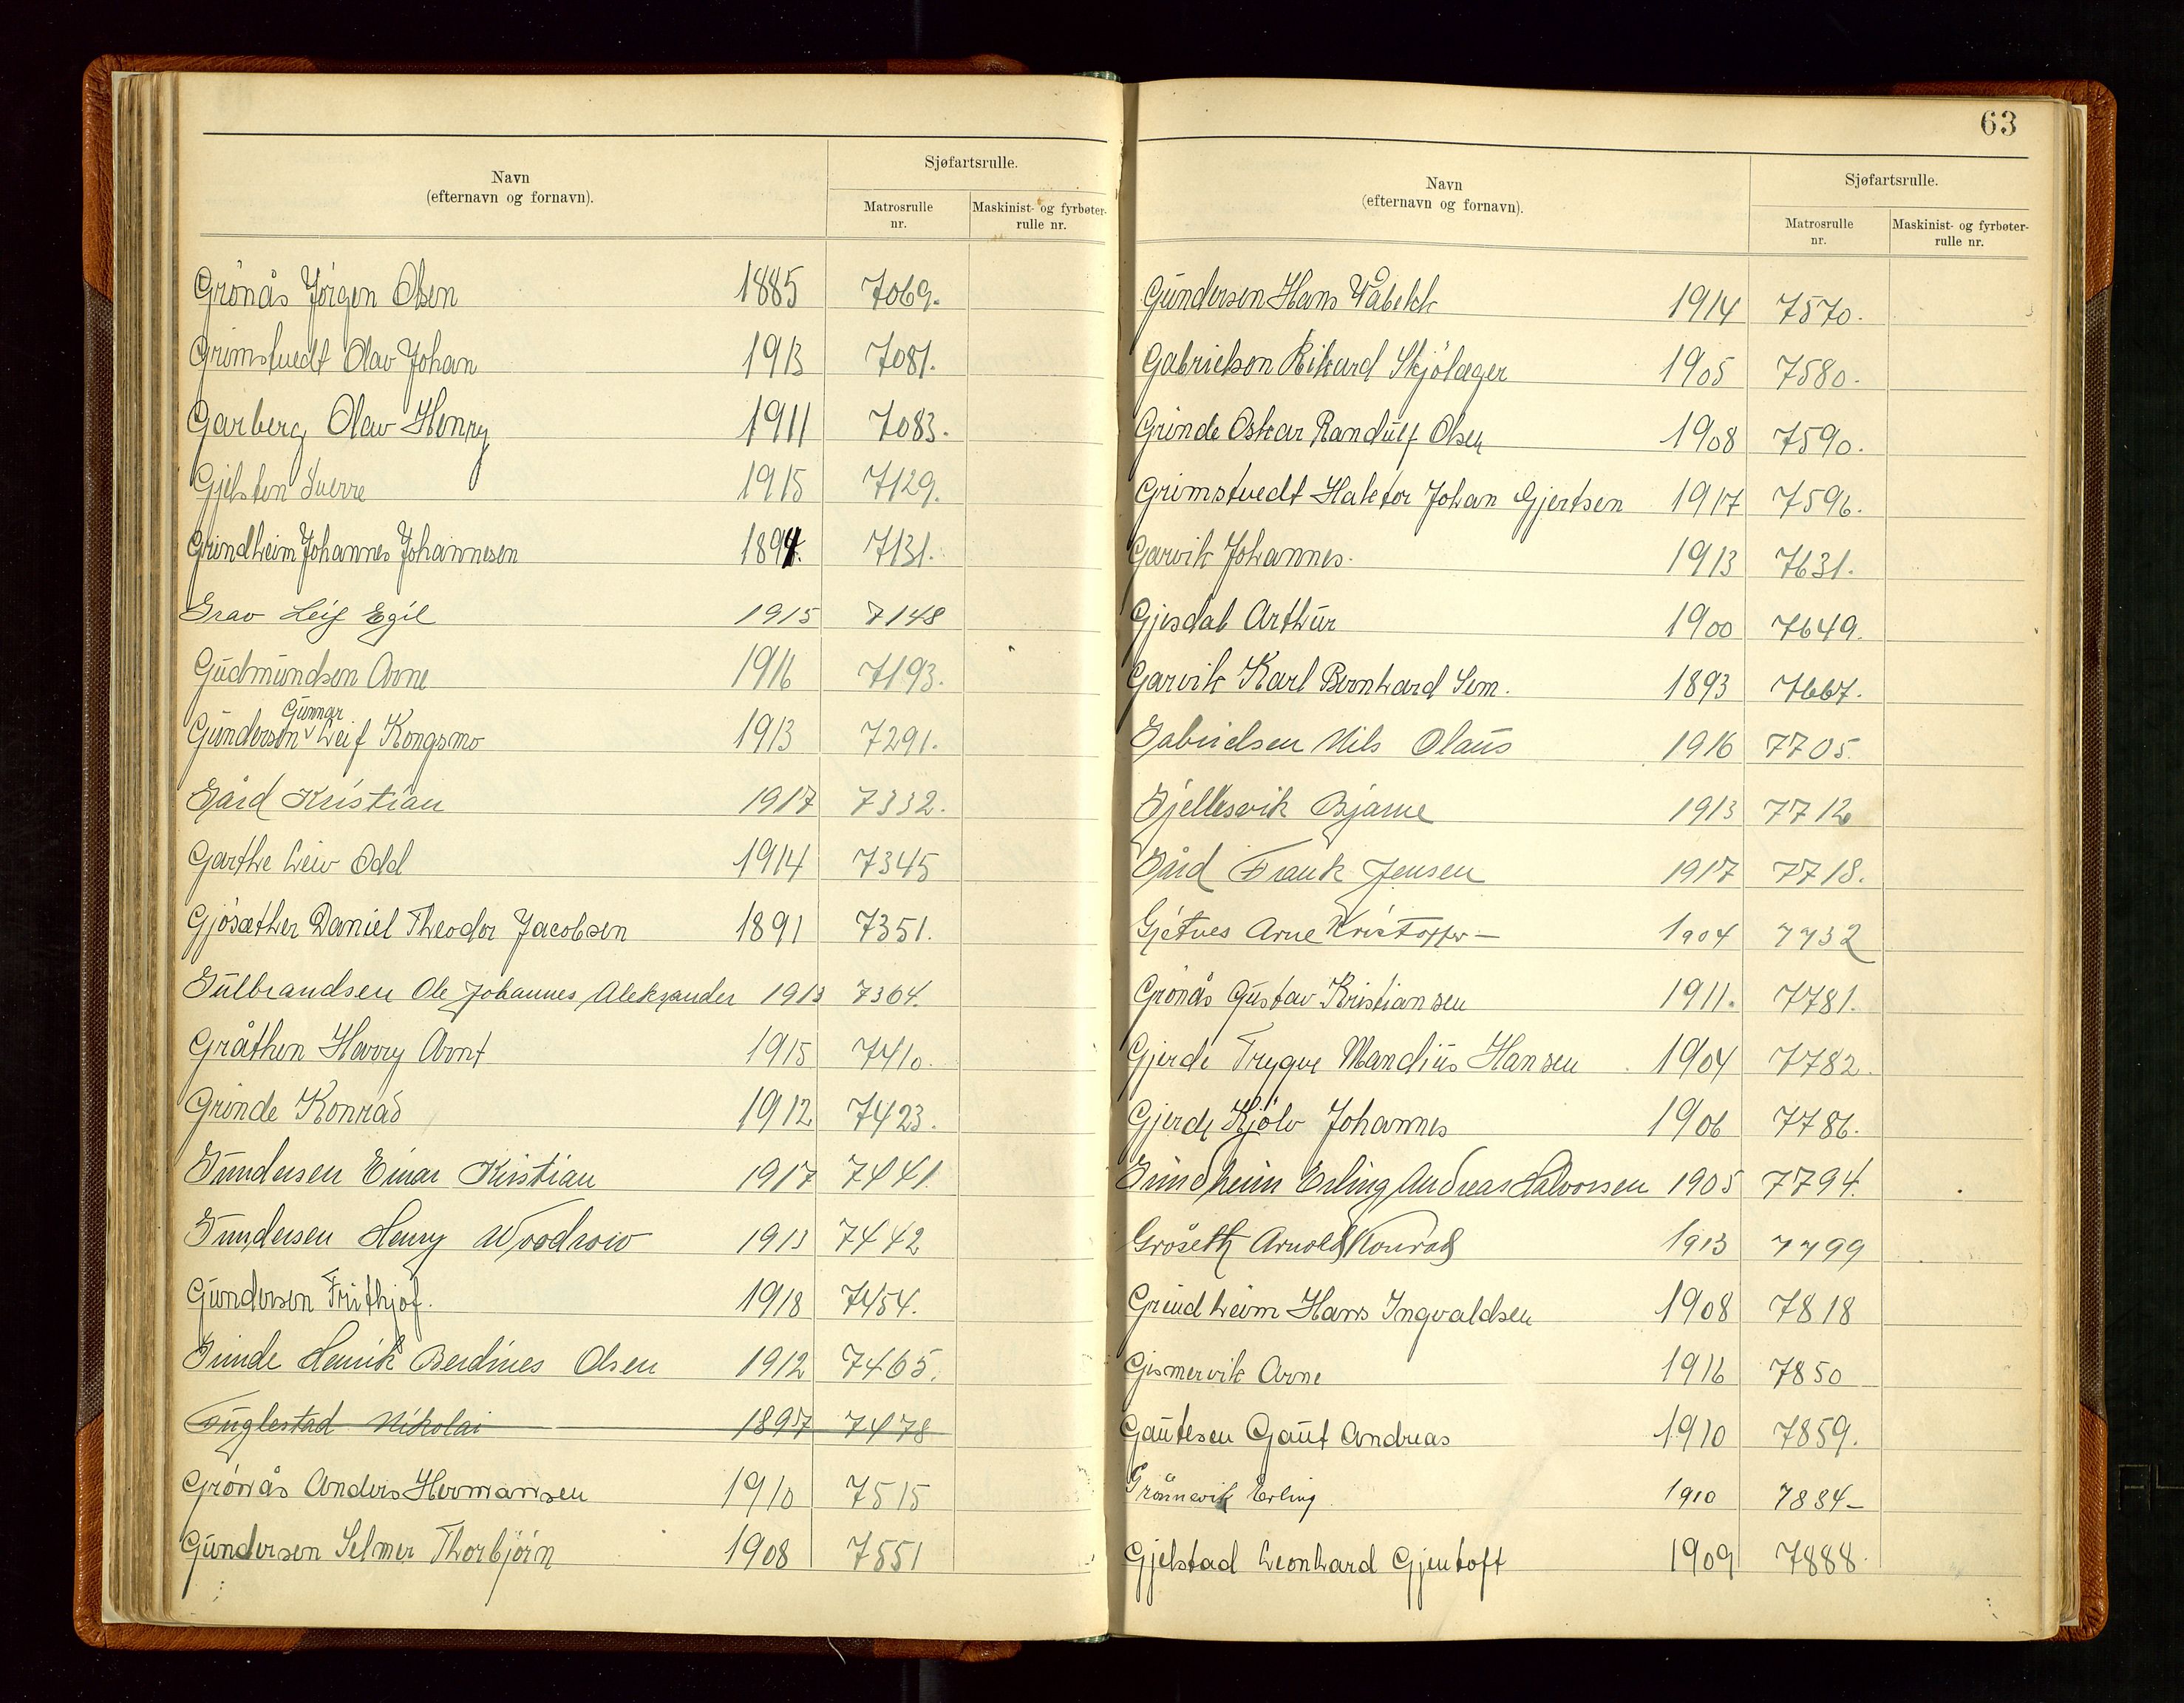 Navn
(efternavn og fornavn).
Sjøfartsrulle.
Matrosrulle
nr.
Maskinist- og fyrbøter-
rulle nr.
Grönås Jørgen Olsen 1885 7069.
Grimstvedt Olav Johan 1913 7081.
Garberg Olav Henry 1911 7083.
Gjelsten Sverre 1915 7129.
Grindheim Johannes Johannesen 1894. 7131.
Grav Leif Egil 1915 7148
Gudmundsen Arne 1916 7193.
Gunnar
Gundersen Leif Kongsmo 1913 7291.
Gård Kristian 1917 7332.
Garthe Leiv Odd 1914 7345
Gjösæther Daniel Theodor Jacobsen 1891 7351.
Gulbrandsen Ole Johannes Aleksander 1913 7364.
Gråthen Harry Arnt 1915 7410.
Grinde Konrad 1912 7423.
Gundersen Einar Kristian 1917 7441.
Gundersen Henry Woodrow 1913 7442
Gundersen Frithjof. 1918 7454.
Grinde Henrik Berdines Olsen 1912 7465.
Fuglestad Nikolai 1897 7478
Grönås Anders Hermansen 1910 7515
Gundersen Selmer Thorbjörn 1908 7551
63
Navn
(efternavn og fornavn).
Sjøfartsrulle.
Matrosrulle
nr.
Maskinist- og fyrbøter-
rulle nr.
Gundersen Hans Vabekk 1914 7570.
Gabrielsen Rikard Skjölæger 1905 7580.
Grinde Oskar Randulf Olsen 1908 7590.
Grimstvedt Haktor Johan Gjertsen 1917 7596.
Garvik Johannes. 1913 7631.
Gjesdal Arthur 1900 7649.
Garvik Karl Bernhard Sem. 1893 7667.
Gabrielsen Nils Olaus 1916 7705.
Gjellesvik Bjarne 1913 7712
Gård Frank Jensen 1917 7718.
Gjetnes Arne Kristoffer — 1904 7732
Grönås Gustav Kristiansen 1911. 7781.
Gjerde Trygve Mandius Hansen 1904 7782.
Gjerde Kjölv Johannes 1906 7786.
Grindheim Erling Andreas Halvorsen 1905 7794.
Gröseth Arnold Konrad 1913 7799
Grindheim Hans Ingvaldsen 1908 7818
Gismervik Arne 1916 7850
Gautesen Gaut Andreas 1910 7859.
Grönnevik Erling 1910 7884-
Gjelstad Leonhard Gjentoft 1909 7888.